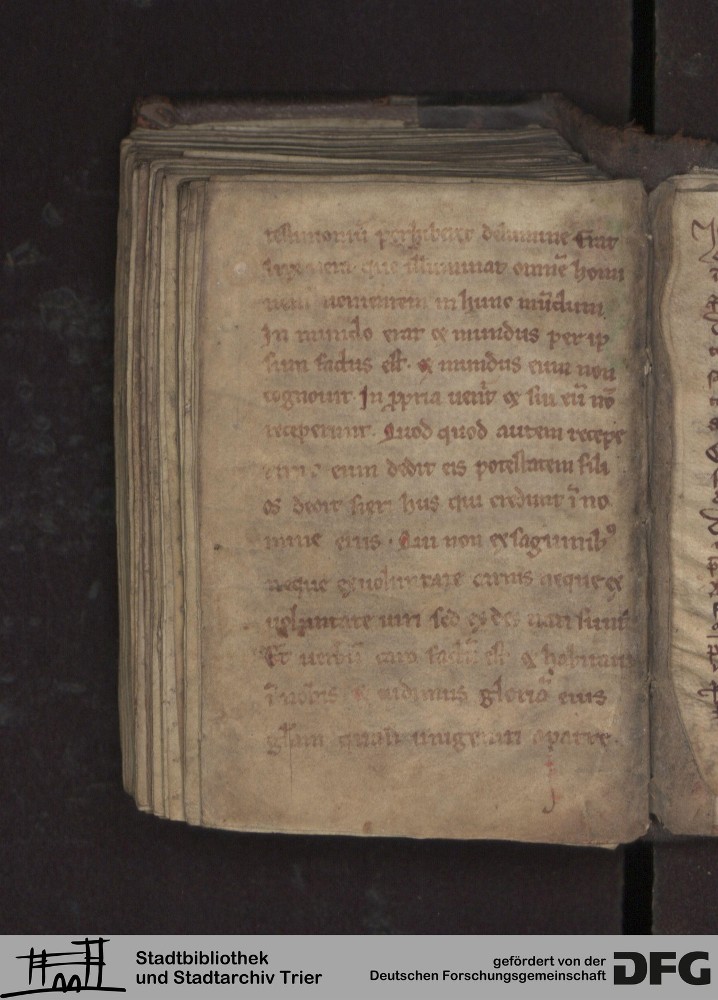 testimoniũ perhiberet delumine Erat
lux uera que illuminat omnẽ homi
nem uenientem inhunc mũdum
In mundo erat & mundus per ip
sum factus est. & mundus eum non
cognouit In ppria uenit & sui eũ nõ
receperunt. Quod quod autem recepe
eum dedit eis potestatem fili
os dei fieri hus qui credunt ĩ no
mine eius. Qui non exsaguinibꝰ
neque exuoluntate carnis neque ex
uoluntate uiri sed ex deo nati sunt
Et uerbũ caro factũ est & habitauit
ĩ nobis & uidimus gloriã eius
gl̃am quasi unigeniti apatre.
Stadtbibliothek
und Stadtarchiv Trier
gefördert von der
Deutschen Forschungsgemeinschaft
DFG